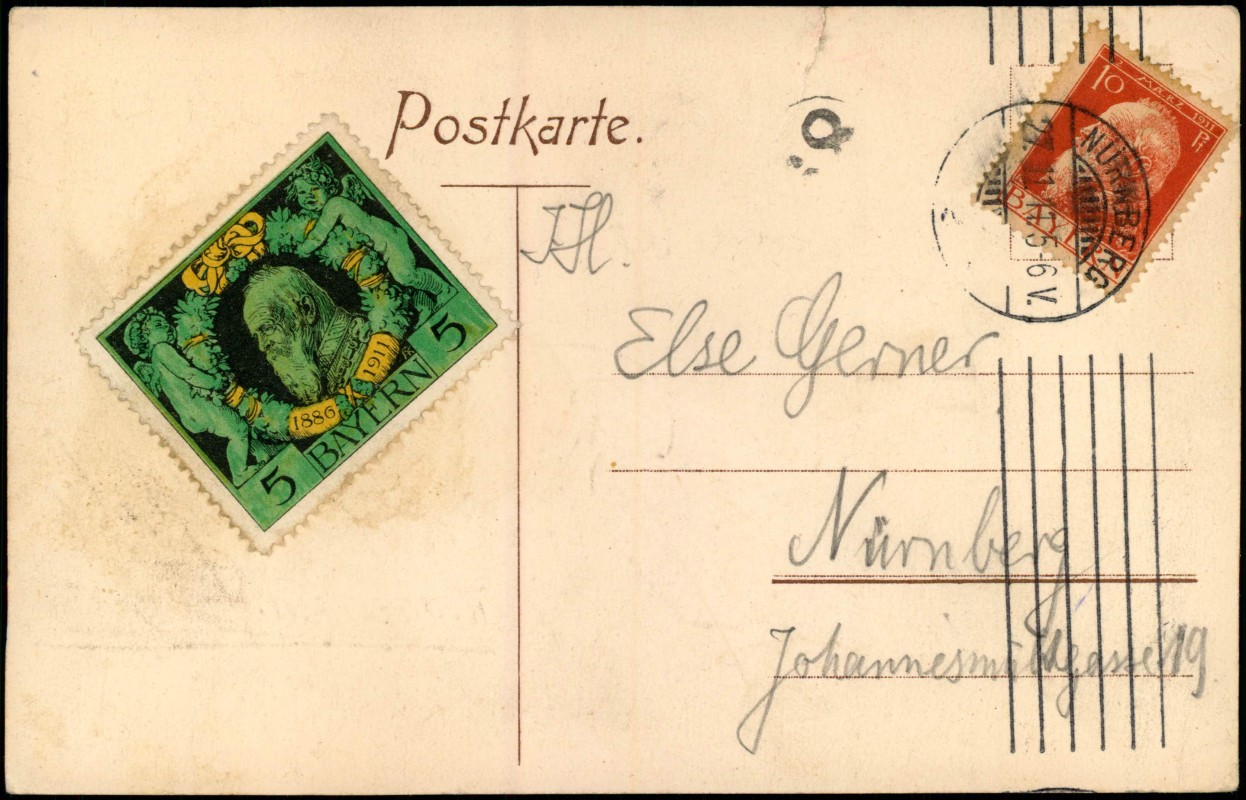 Postkarte.
Frl.
Else Gerner
Nürnberg
Johannesmühlgasse 19
1886 1911
5 BAYERN 5
12. MÄRZ 1911
10 Pf
BAYERN
NÜRNBERG
5-6 V.